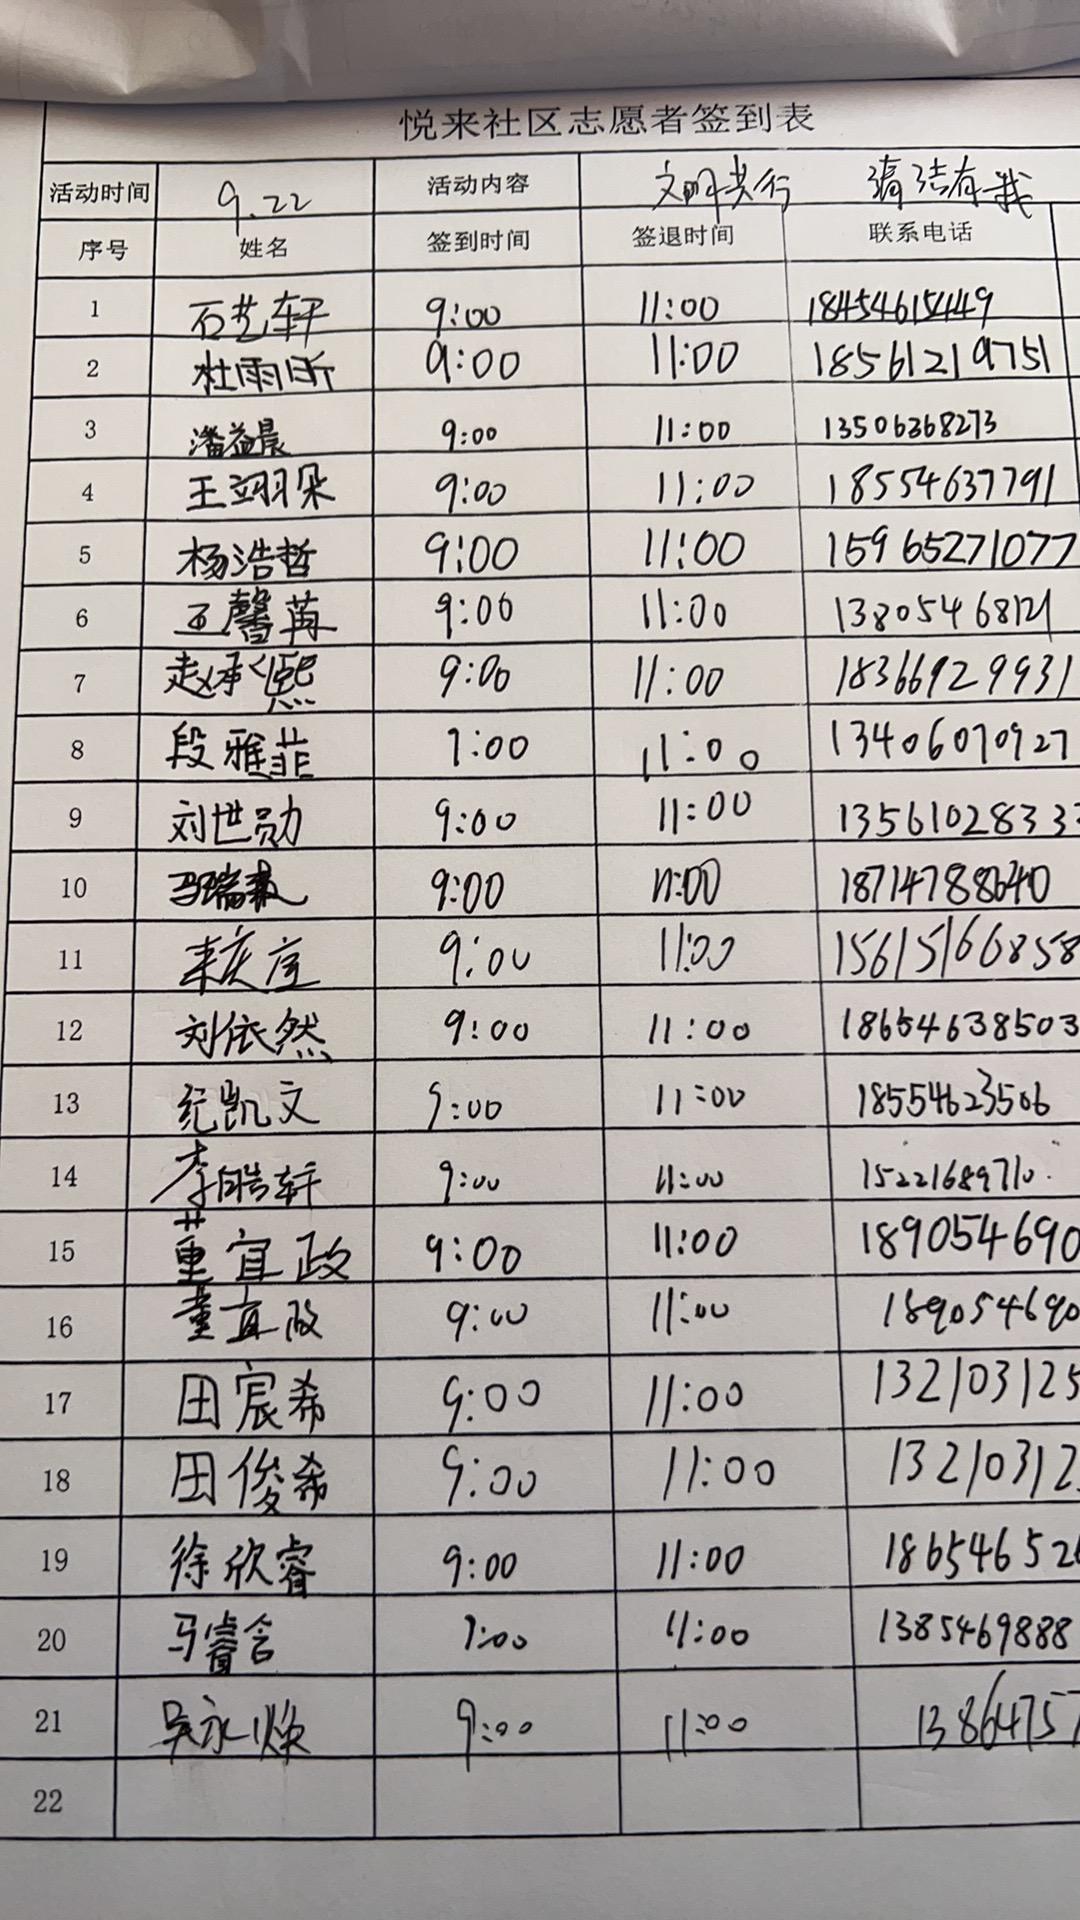 悦来社区志愿者签到表
活动时间 9.22 活动内容 文明共行 清洁有我
序号 姓名 签到时间 签退时间 联系电话
1 石艺轩 9:00 11:00 18454615449
2 杜雨昕 9:00 11:00 18561219751
3 潘益晨 9:00 11:00 13506368273
4 王翊朵 9:00 11:00 18554637791
5 杨浩哲 9:00 11:00 15965271077
6 王馨苒 9:00 11:00 13805468121
7 赵承熙 9:00 11:00 18366929931
8 段雅菲 9:00 11:00 13406070927
9 刘世勋 9:00 11:00 13561028333
10 9:00 11:00 18714788640
11 9:00 11:00 15615166858
12 刘依然 9:00 11:00 18654638503
13 纪凯文 9:00 11:00 18554623506
14 李皓轩 9:00 11:00 15221689710
15 董宜政 9:00 11:00 189054690
16 董宜政 9:00 11:00 189054690
17 田宸希 9:00 11:00 132103125
18 田俊希 9:00 11:00 13210312
19 徐欣睿 9:00 11:00 186546526
20 马睿含 9:00 11:00 1385469888
21 吴永焕 9:00 11:00 13864757
22